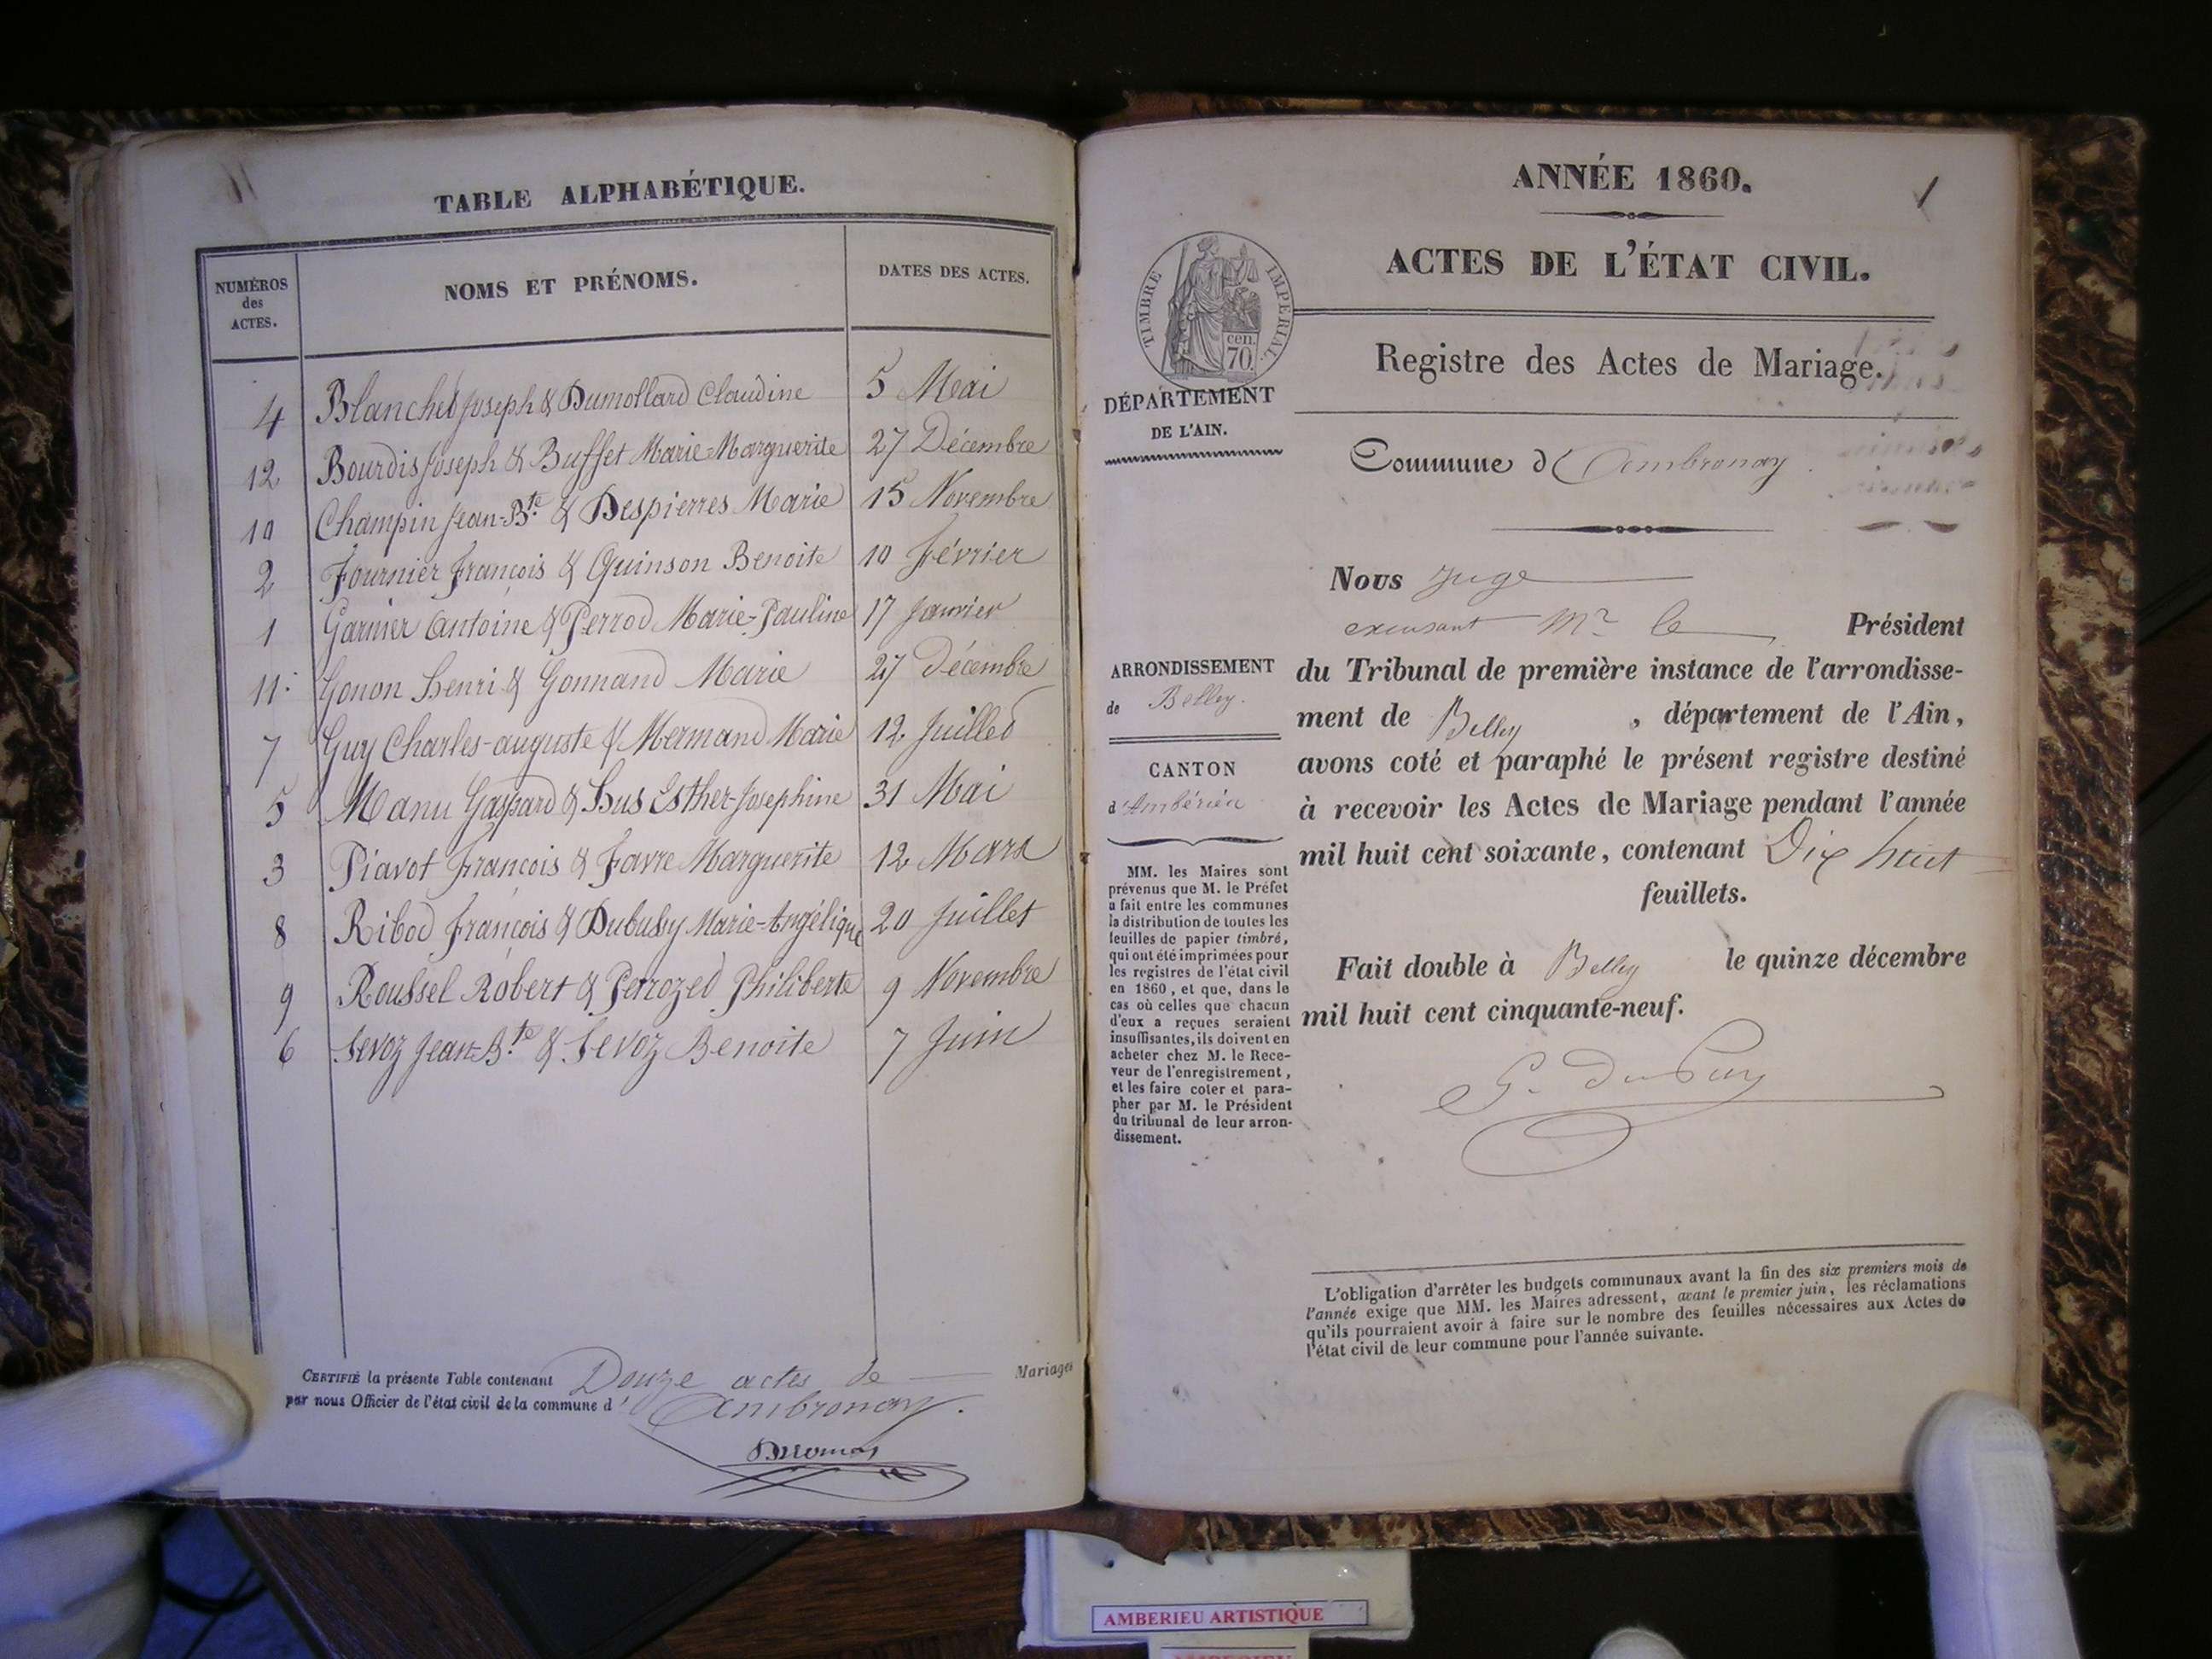 TABLE ALPHABÉTIQUE.
NUMÉROS des ACTES.
NOMS ET PRÉNOMS.
DATES DES ACTES.
4 Blanchet Joseph & Dumollard Claudine 5 Mai
12 Bourdis Joseph & Buffet Marie-Marguerite 27 Décembre
10 Champin Jean-Bte & Despierres Marie 15 Novembre
2 Fournier François & Quinson Benoite 10 Février
1 Garnier Antoine & Perrod Marie-Pauline 17 Janvier
11 Gonon Henri & Gonnand Marie 27 Décembre
7 Guy Charles-auguste & Mermand Marie 12 Juillet
5 Manu Gaspard & Hus Esther-Josephine 31 Mai
3 Piavot François & Favre Marguerite 12 Mars
8 Ribod François & Marie-Angélique 20 Juillet
9 Roussel Robert & Perrozet Philiberte 9 Novembre
6 Sevoz Jean-Bte & Sevoz Benoite 7 Juin
CERTIFIÉ la présente Table contenant Douze actes de Mariages
par nous Officier de l'état civil de la commune d'Ambronay.
1
ANNÉE 1860.
ACTES DE L'ÉTAT CIVIL.
TIMBRE IMPERIAL
cen.
70.
Registre des Actes de Mariage.
DÉPARTEMENT
DE L'AIN.
Commune d'Ambronay
Nous Juge
excusant Mr le Président
du Tribunal de première instance de l'arrondisse-
ment de Belley, département de l'Ain,
avons coté et paraphé le présent registre destiné
à recevoir les Actes de Mariage pendant l'année
mil huit cent soixante, contenant Dix huit
feuillets.
Fait double à Belley le quinze décembre
mil huit cent cinquante-neuf.
ARRONDISSEMENT
de Belley.
CANTON
d'Ambérieu
MM. les Maires sont
prévenus que M. le Préfet
a fait entre les communes
la distribution de toutes les
feuilles de papier timbré,
qui ont été imprimées pour
les registres de l'état civil
en 1860, et que, dans le
cas où celles que chacun
d'eux a reçues seraient
insuffisantes, ils doivent en
acheter chez M. le Rece-
veur de l'enregistrement,
et les faire coter et para-
pher par M. le Président
du tribunal de leur arron-
dissement.
L'obligation d'arrêter les budgets communaux avant la fin des six premiers mois de
l'année exige que MM. les Maires adressent, avant le premier juin, les réclamations
qu'ils pourraient avoir à faire sur le nombre des feuilles nécessaires aux Actes de
l'état civil de leur commune pour l'année suivante.
AMBERIEU ARTISTIQUE